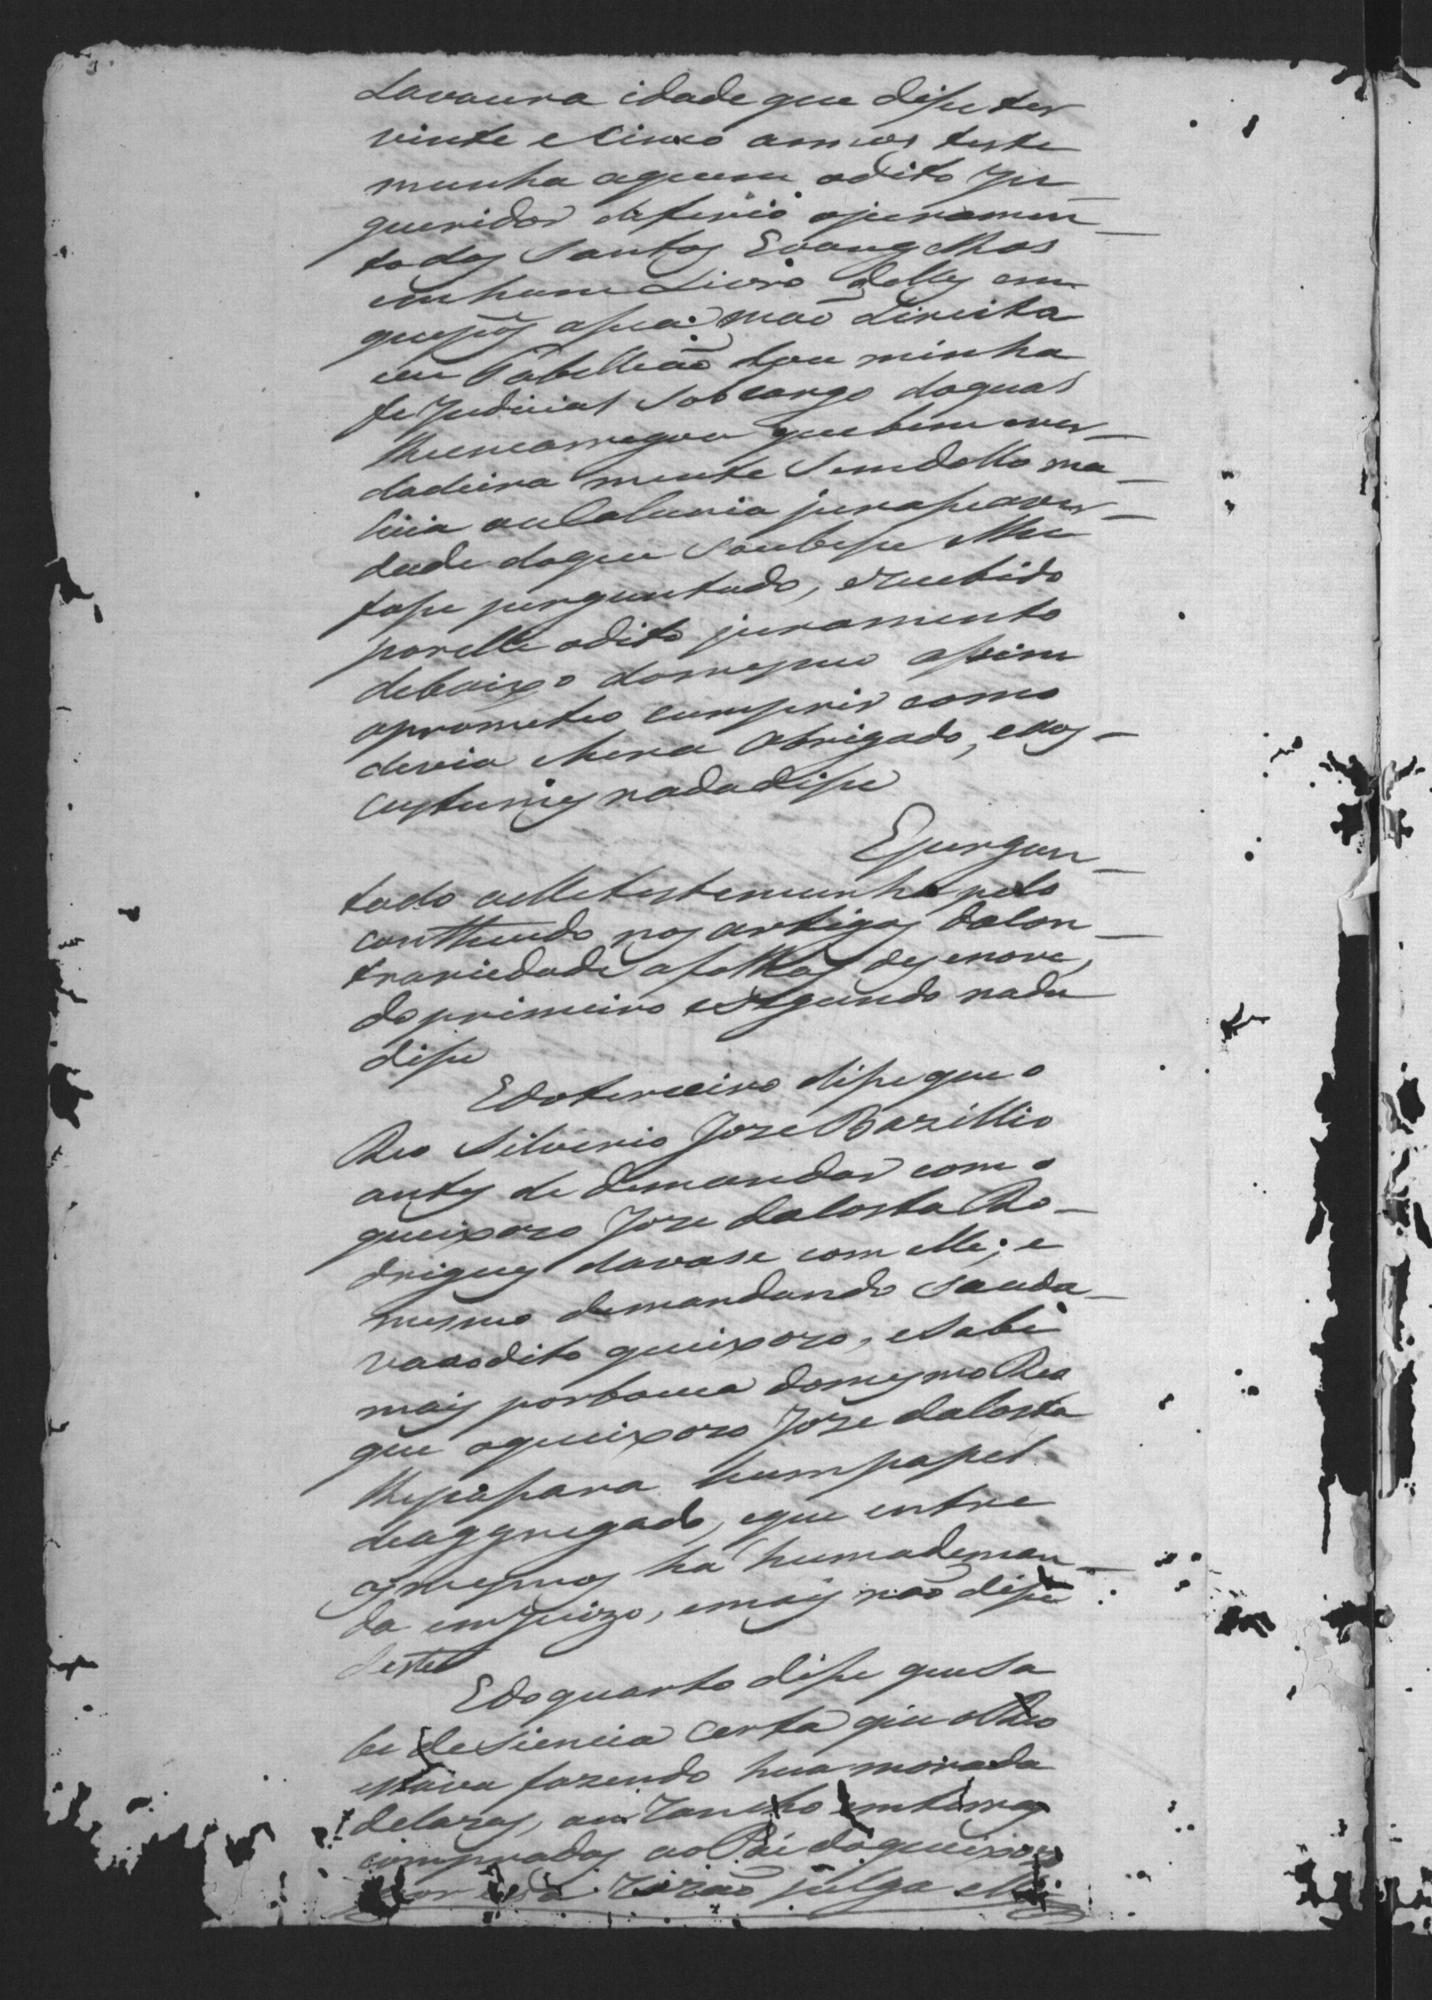 Lavoura idade que disse ter
vinte e Cinco annos teste
munha aquem odito In
queridor deferio ojuramen
to dos Santos Evangelhos
em hum Livro delles em
quepôs asua mão direita
eu Tabelliaõ dou minha
fe Judicial sobcargo doqual
lheencarregou quebem ever
dadeira mente sem dollo ma
licia ouCalunia jurasse aver
dade doque soubesse elhe
fosse perguntado, erecebido
porelle odito juramento
debaixo domesmo assim
oprometeo cumprir como
devia ehera obrigado, eaos
custumes nadadisse
Epergun
tado aelletestemunha pelo
contheudo nos artigos daCon
trariedade afolhas desenove,
do primeiro esegundo nada
disse
Edoterceiro disse que o
Reo Silverio Joze Bazillio
antes de demandar com o
queixozo Joze daCosta Ro
drigues davase com elle; e
mesmo demandando sauda
vaaodito queixozo, esabe
mais porbouca domesmo Reo
que oqueixozo Joze daCosta
lhepassara hum papel
deaggregado, eque entre
osmesmos ha humademan
da emJuizo, emais não disse
deste
Edoquarto disse quesa
be deSiencia Certa que oReo
estava fazendo hua morada
deCazas, ou Rancho emterras
compradas ao Pai doqueixozo
por essa rezaõ julga elle